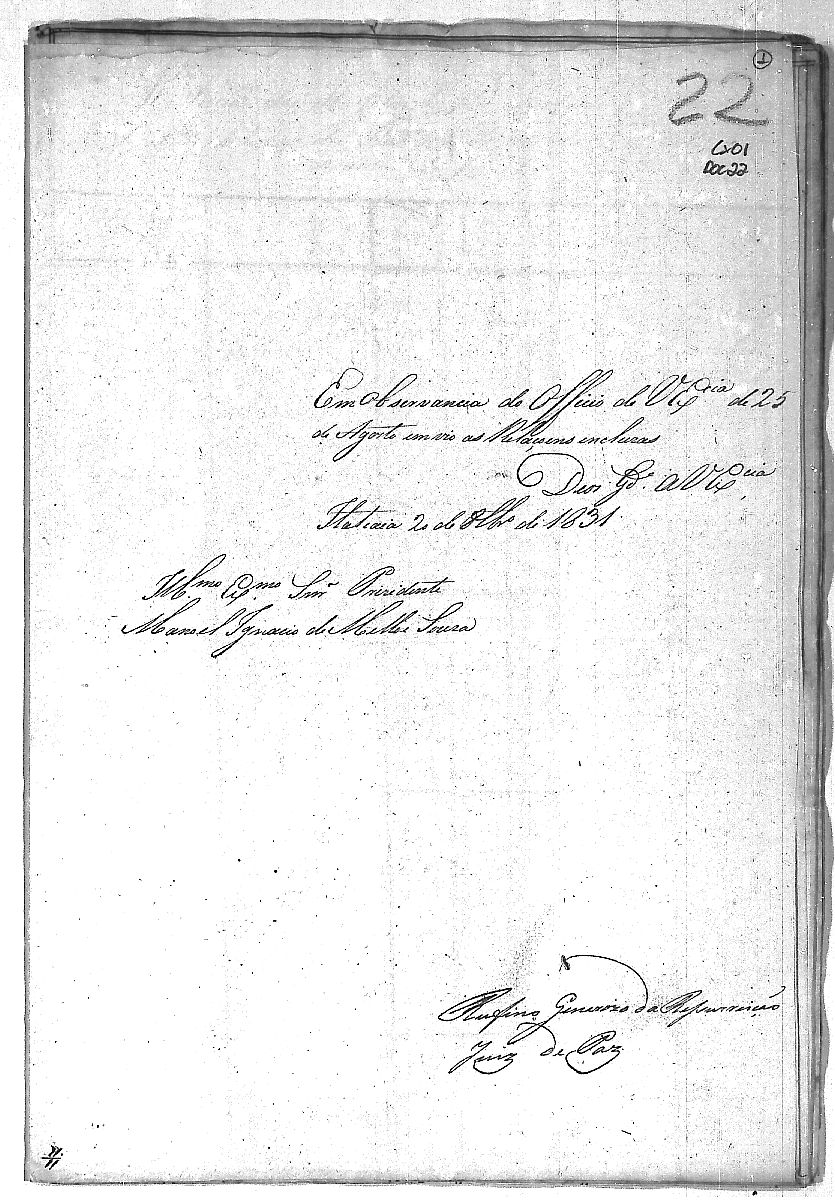 1
22
Cx01
DOC22
Em Observancia do Officio de V Ex.cia de 25
de Agosto envio as Relaçoens incluzas
Deos G.de a V Ex.cia
Itatiaia 20 de 8br.o de 1831
Ill.mo Ex.mo Snr Prezidente
Manoel Ignacio de Mello e Souza
Rufino Generozo da Ressurreição
Juiz de Paz